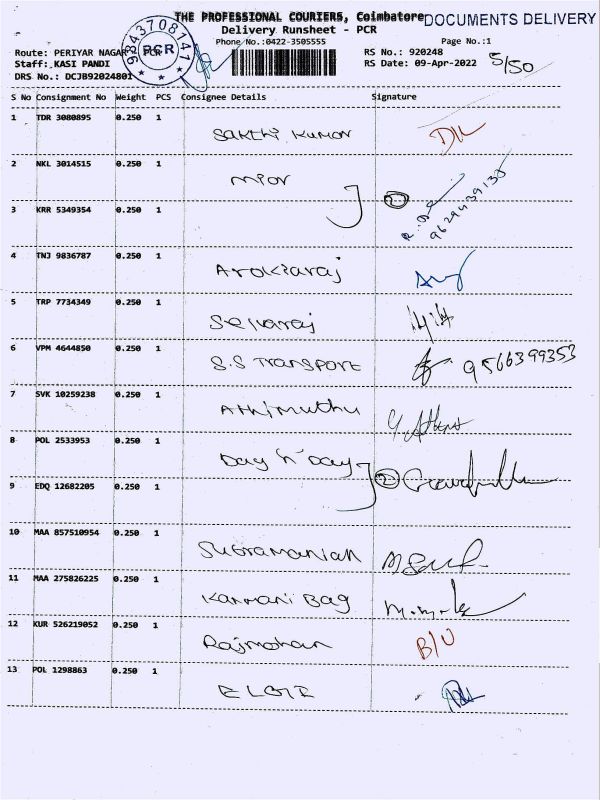 THE PROFESSIONAL COURIERS, Coimbatore DOCUMENTS DELIVERY
Delivery Runsheet - PCR
Phone No.:0422-3505555
Page No.:1
Route: PERIYAR NAGAR PCR
RS No.: 920248
Staff: KASI PANDI
RS Date: 09-Apr-2022
5/50
DRS No.: DCJB92024801
9843708141
PCR
S No Consignment No Weight PCS Consignee Details Signature
1 TDR 3080895 0.250 1 Sakthi Kumar
2 NKL 3014515 0.250 1 2
3 KRR 5349354 0.250 1 9629439130
4 TNJ 9836787 0.250 1 Arokiaraj
5 TRP 7734349 0.250 1 Selvaraj
6 VPM 4644850 0.250 1 S.S Transport 9566399353
7 SVK 10259238 0.250 1 Athimuthu
8 POL 2533953 0.250 1 Day n Day 2
9 EDQ 12682205 0.250 1
10 MAA 857510954 0.250 1 Subramanian
11 MAA 275826225 0.250 1 Kanmani Bag
12 KUR 526219052 0.250 1 Rajmohan
13 POL 1298863 0.250 1